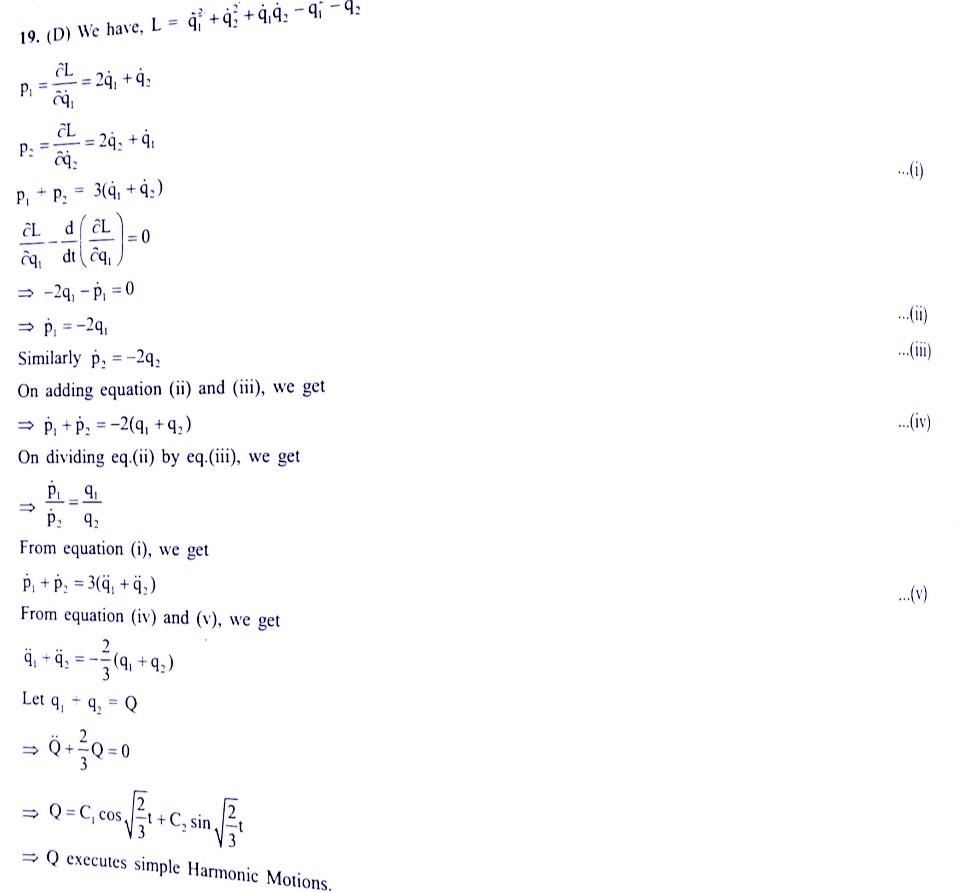 19. (D) We have, L = q̇₁² + q̇₂² + q̇₁q̇₂ − q₁² − q₂
p₁ = ∂L/∂q̇₁ = 2q̇₁ + q̇₂
p₂ = ∂L/∂q̇₂ = 2q̇₂ + q̇₁
p₁ + p₂ = 3(q̇₁ + q̇₂) ...(i)
∂L/∂q₁ − d/dt(∂L/∂q₁) = 0
⇒ −2q₁ − ṗ₁ = 0
⇒ ṗ₁ = −2q₁ ...(ii)
Similarly ṗ₂ = −2q₂ ...(iii)
On adding equation (ii) and (iii), we get
⇒ ṗ₁ + ṗ₂ = −2(q₁ + q₂) ...(iv)
On dividing eq.(ii) by eq.(iii), we get
⇒ ṗ₁/ṗ₂ = q₁/q₂
From equation (i), we get
ṗ₁ + ṗ₂ = 3(q̈₁ + q̈₂) ...(v)
From equation (iv) and (v), we get
q̈₁ + q̈₂ = −2/3(q₁ + q₂)
Let q₁ + q₂ = Q
⇒ Q̈ + 2/3Q = 0
⇒ Q = C₁ cos√(2/3)t + C₂ sin√(2/3)t
⇒ Q executes simple Harmonic Motions.